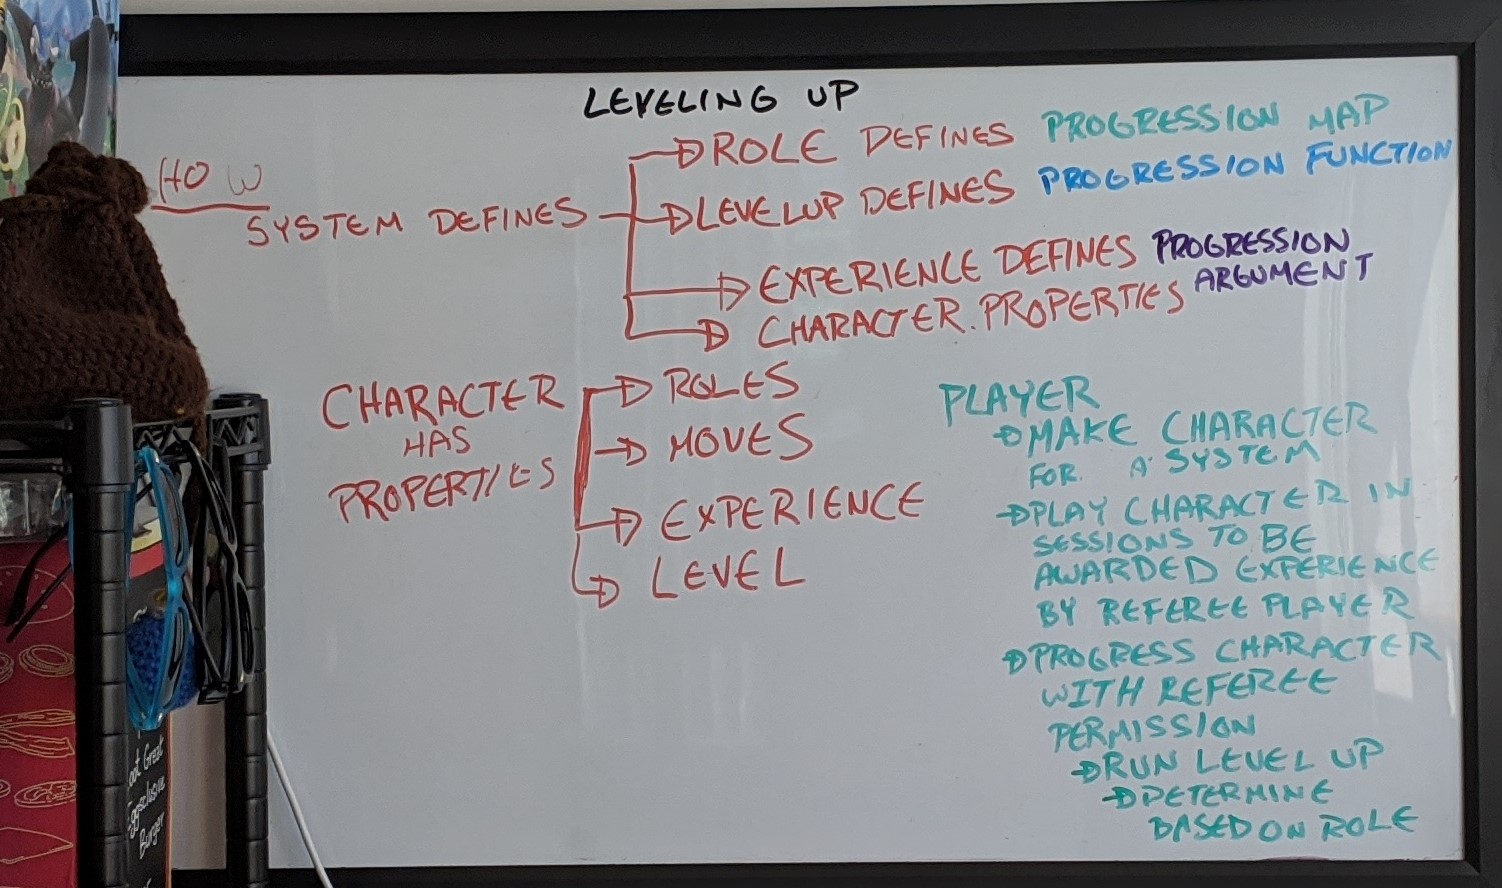 LEVELING UP
HOW
SYSTEM DEFINES
ROLE DEFINES PROGRESSION MAP
LEVELUP DEFINES PROGRESSION FUNCTION
EXPERIENCE DEFINES PROGRESSION
ARGUMENT
CHARACTER.PROPERTIES
CHARACTER
HAS
PROPERTIES
ROLES
MOVES
EXPERIENCE
LEVEL
PLAYER
MAKE CHARACTER
FOR A SYSTEM
PLAY CHARACTER IN
SESSIONS TO BE
AWARDED EXPERIENCE
BY REFEREE PLAYER
PROGRESS CHARACTER
WITH REFEREE
PERMISSION
RUN LEVEL UP
DETERMINE
BASED ON ROLE
Great
Eggsclusive
Burger